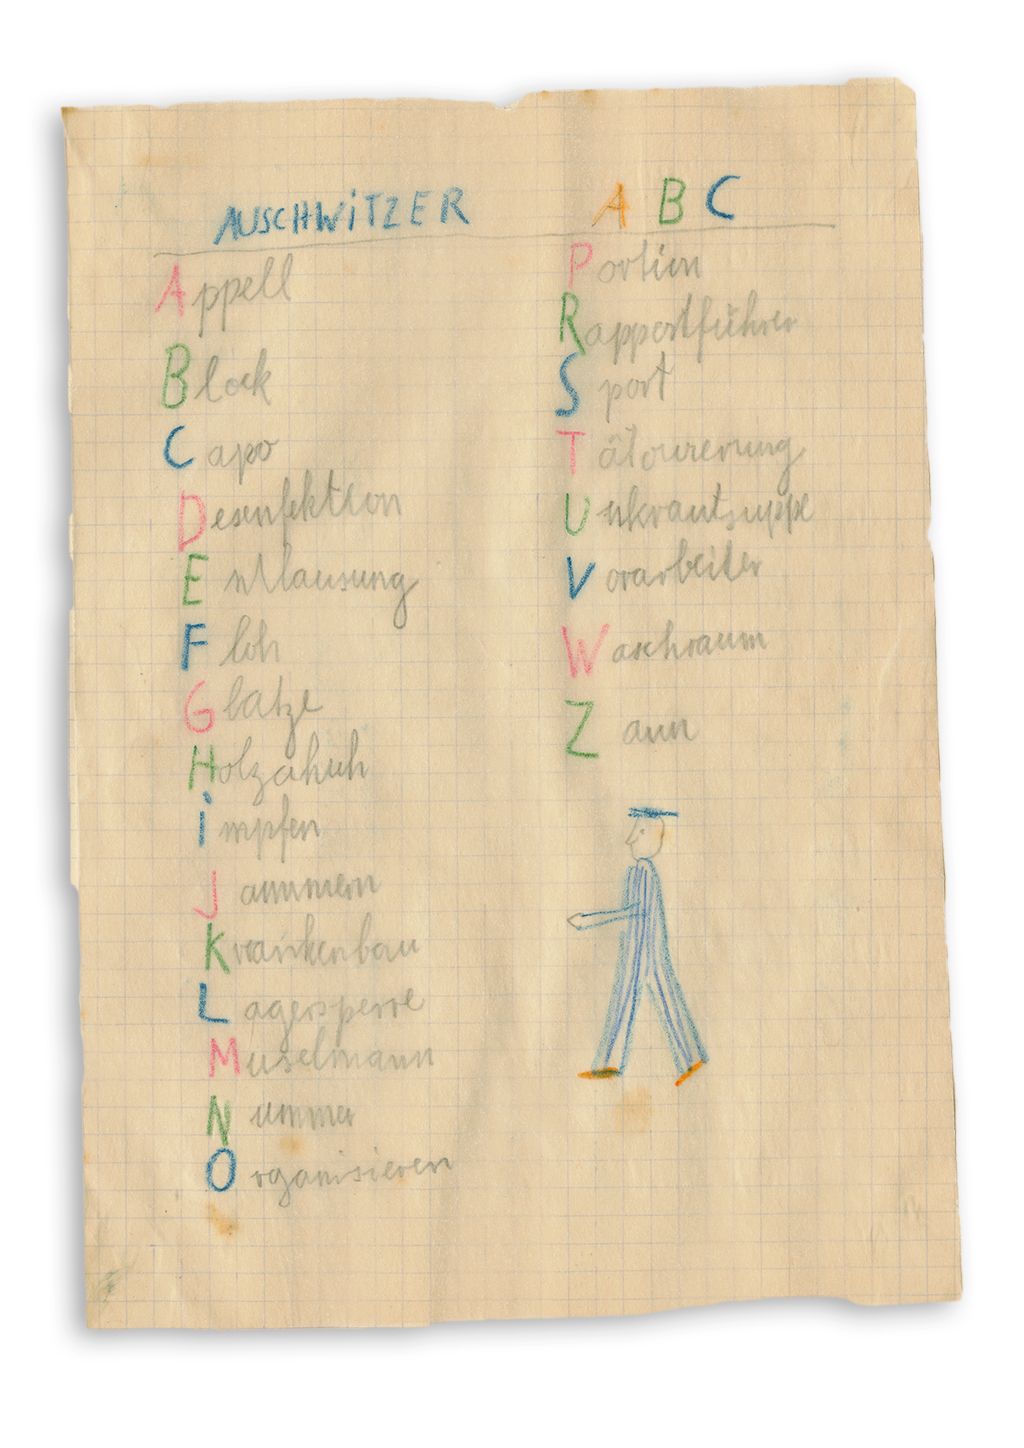 AUSCHWiTZER ABC
Appell
Block
Capo
Desenfektion
Entlausung
Floh
Glatze
Holzschuh
impfen
Jammern
Krankenbau
Lagersperre
Muselmann
Nummer
Organisieren
Portion
Rapportführer
Sport
Tätowierung
Unkrautsuppe
Vorarbeiter
Waschraum
Zaun